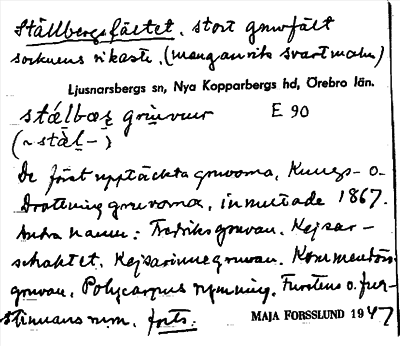 Ställbergsfältet. stort gruvfält
socknens rikaste. (manganrik svartmalm)
Ljusnarsbergs sn, Nya Kopparbergs hd, Örebro län.
E 90
De först upptäckta gruvorna, Kungs- o.
Drottninggruvorna, inmutade 1867.
Andra namn: Fredriksgruvan. Kejsar-
schaktet. Kejsarinnegruvan. Kommentörs
gruvan. Polycarpus rymning. Furstens o. fur-
stinnans rym. forts.
MAJA FORSSLUND 1947